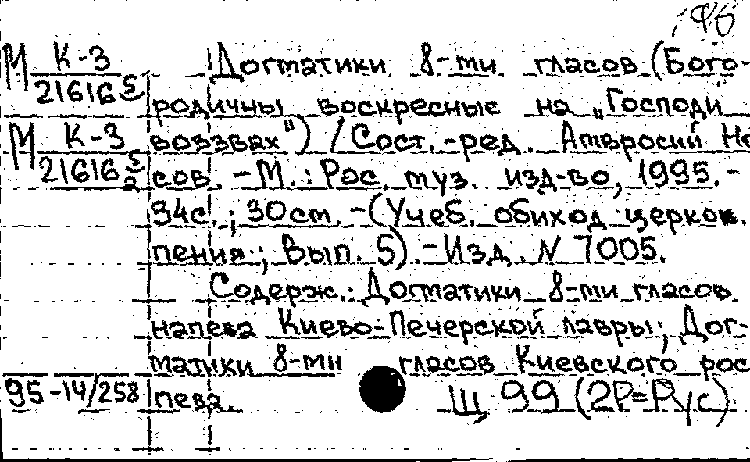 М К-3 Догматики 8-ми гласов (Бого-
21616 5
родичны воскресные на „Господи
М К-3 воззвах") / Сост.-ред. Амвросий Но
21616 5/2 сов. - М. : Рос. муз. изд-во, 1995. -
94с. ; 30см. - (Учеб. обиход церков.
пения ; Вып. 5). - Изд. N 7005.
Содерж.: Догматики 8-ми гласов
напева Киево-Печерской лавры; Дог-
матики 8-ми гласов Киевского рос
95-14/258 пева. Щ 99 (2Р=Рус)